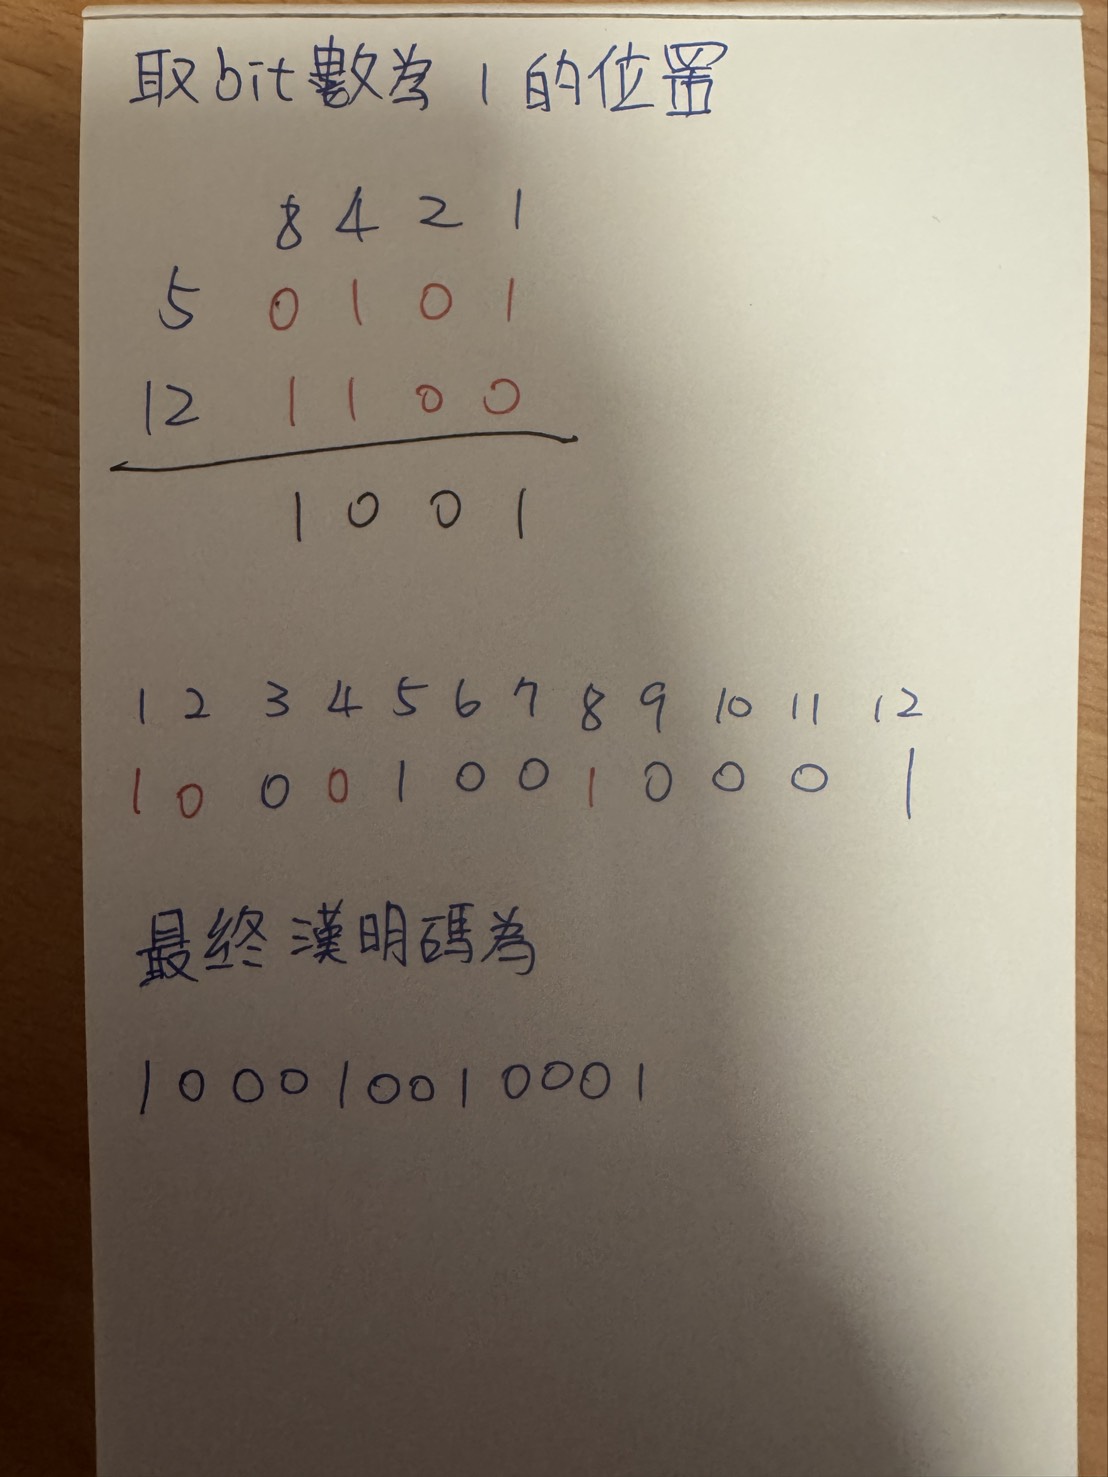 取bit數為 1 的位置
8 4 2 1
5 0 1 0 1
12 1 1 0 0
1 0 0 1
1 2 3 4 5 6 7 8 9 10 11 12
1 0 0 0 1 0 0 1 0 0 0 1
最終漢明碼為
100010010001